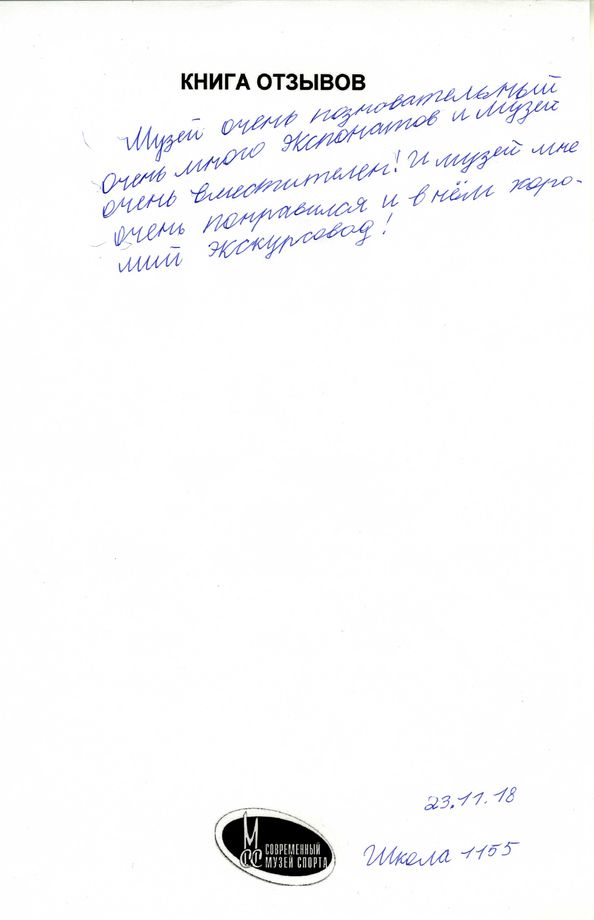 КНИГА ОТЗЫВОВ
Музей очень позновательный
очень много экспонатов и Музей
очень вместителен! И музей мне
очень понравился и в нём хоро-
ший экскурсовод!
23.11.18
СОВРЕМЕННЫЙ
МУЗЕЙ СПОРТА
МСС
Школа 1155